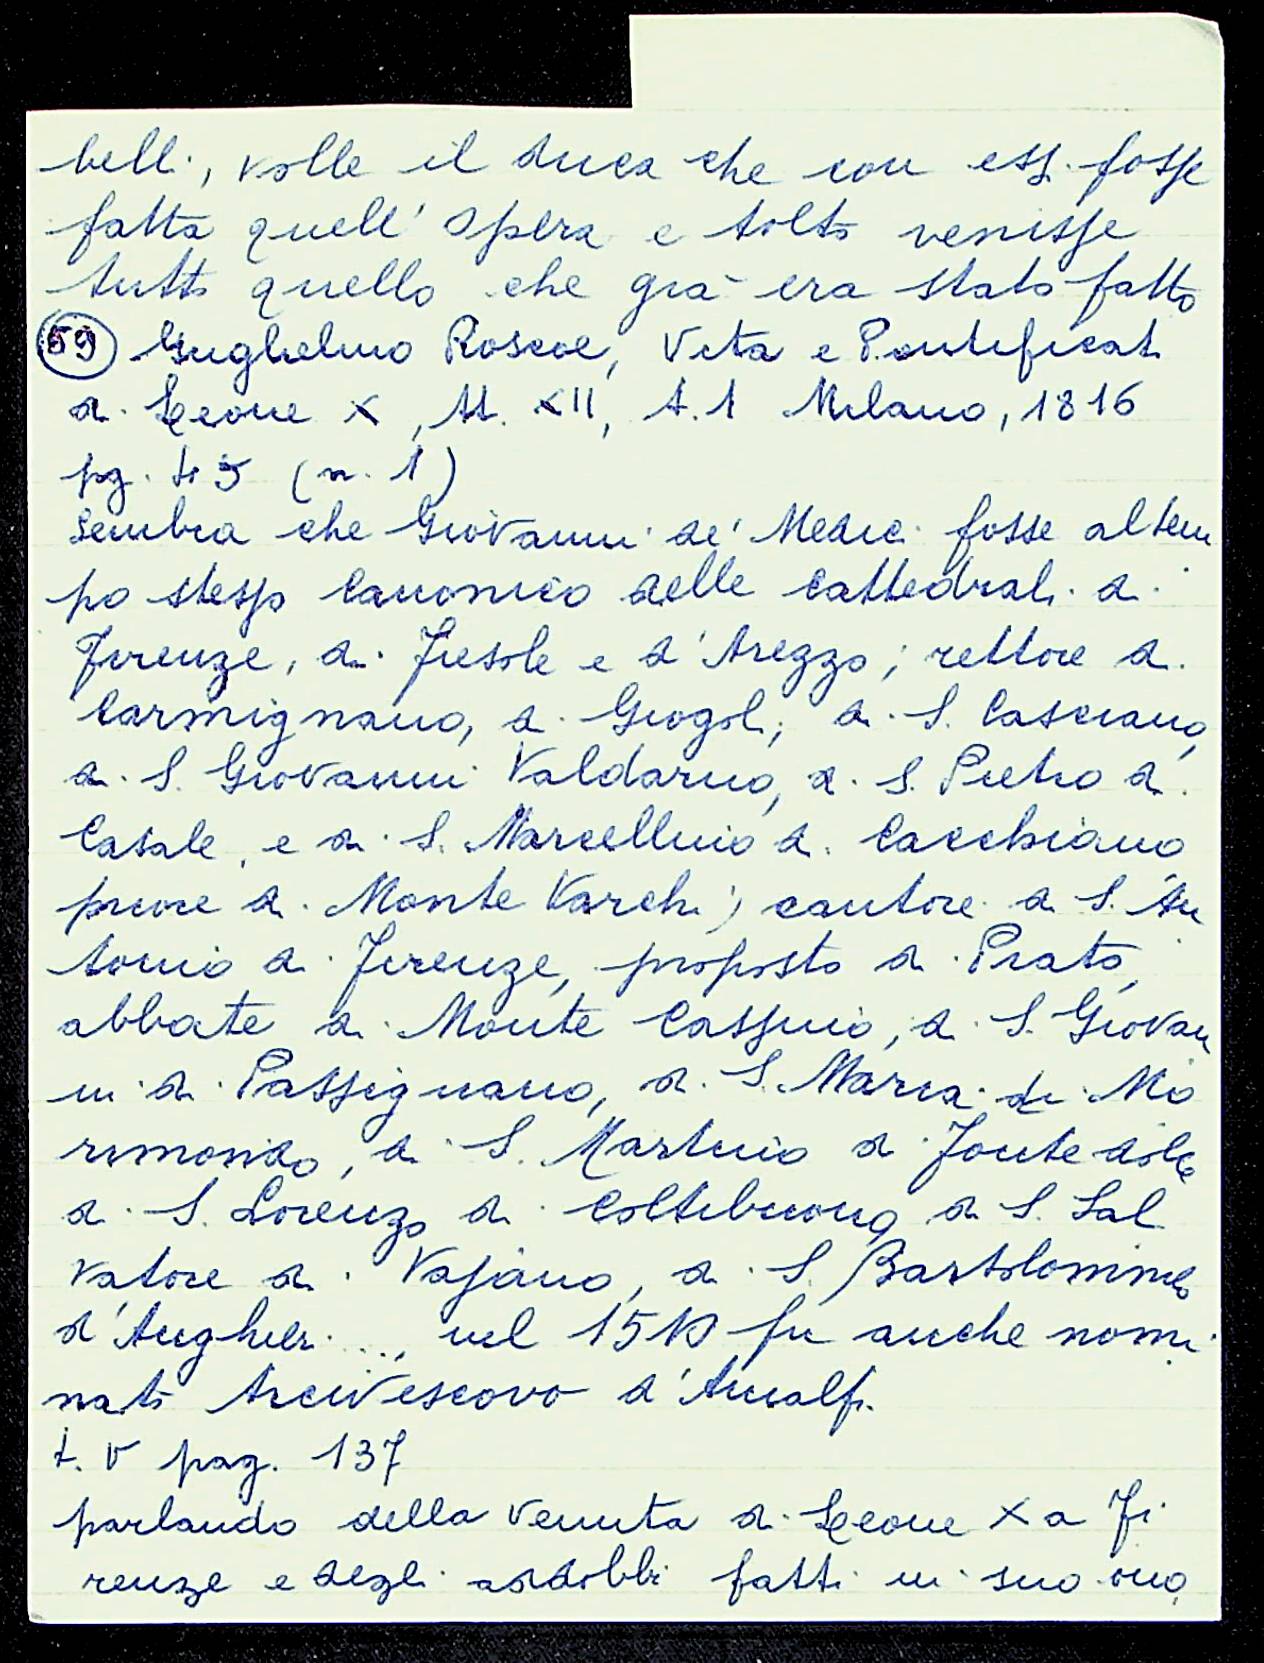 belli, volle il duca che con essi fosse
fatta quell' opera e tolto venisse
tutto quello che già era stato fatto
59 Guglielmo Roscoe, Vita e Pontificato
di Leone X, tt. XII, t. 1 Milano, 1816
pg. 45 (n. 1)
Sembra che Giovanni de' Medici fosse al tem
po stesso Canonico delle Cattedrali di
Firenze, di Fiesole e d'Arezzo; rettore di
Carmignano, di Giogoli, di S. Casciano,
di S. Giovanni Valdarno, di S. Pietro di
Casale, e di S. Marcellino di Cacchiano
priore di Monte Varchi, cantore di S. An
tonio di Firenze, proposto di Prato,
abbate di Monte Cassino, di S. Giovan
ni di Passignano, di S. Maria di Mo
rimondo, di S. Martino di Fonte dolce
di S. Lorenzo di Coltibuono, di S. Sal
vatore di Vajano, di S. Bartolommeo
d'Anghiari ..., nel 1510 fu anche nomi
nato Arcivescovo d'Amalfi.
t. V pag. 137
parlando della venuta di Leone X a Fi
renze e degli addobbi fatti in suo ono